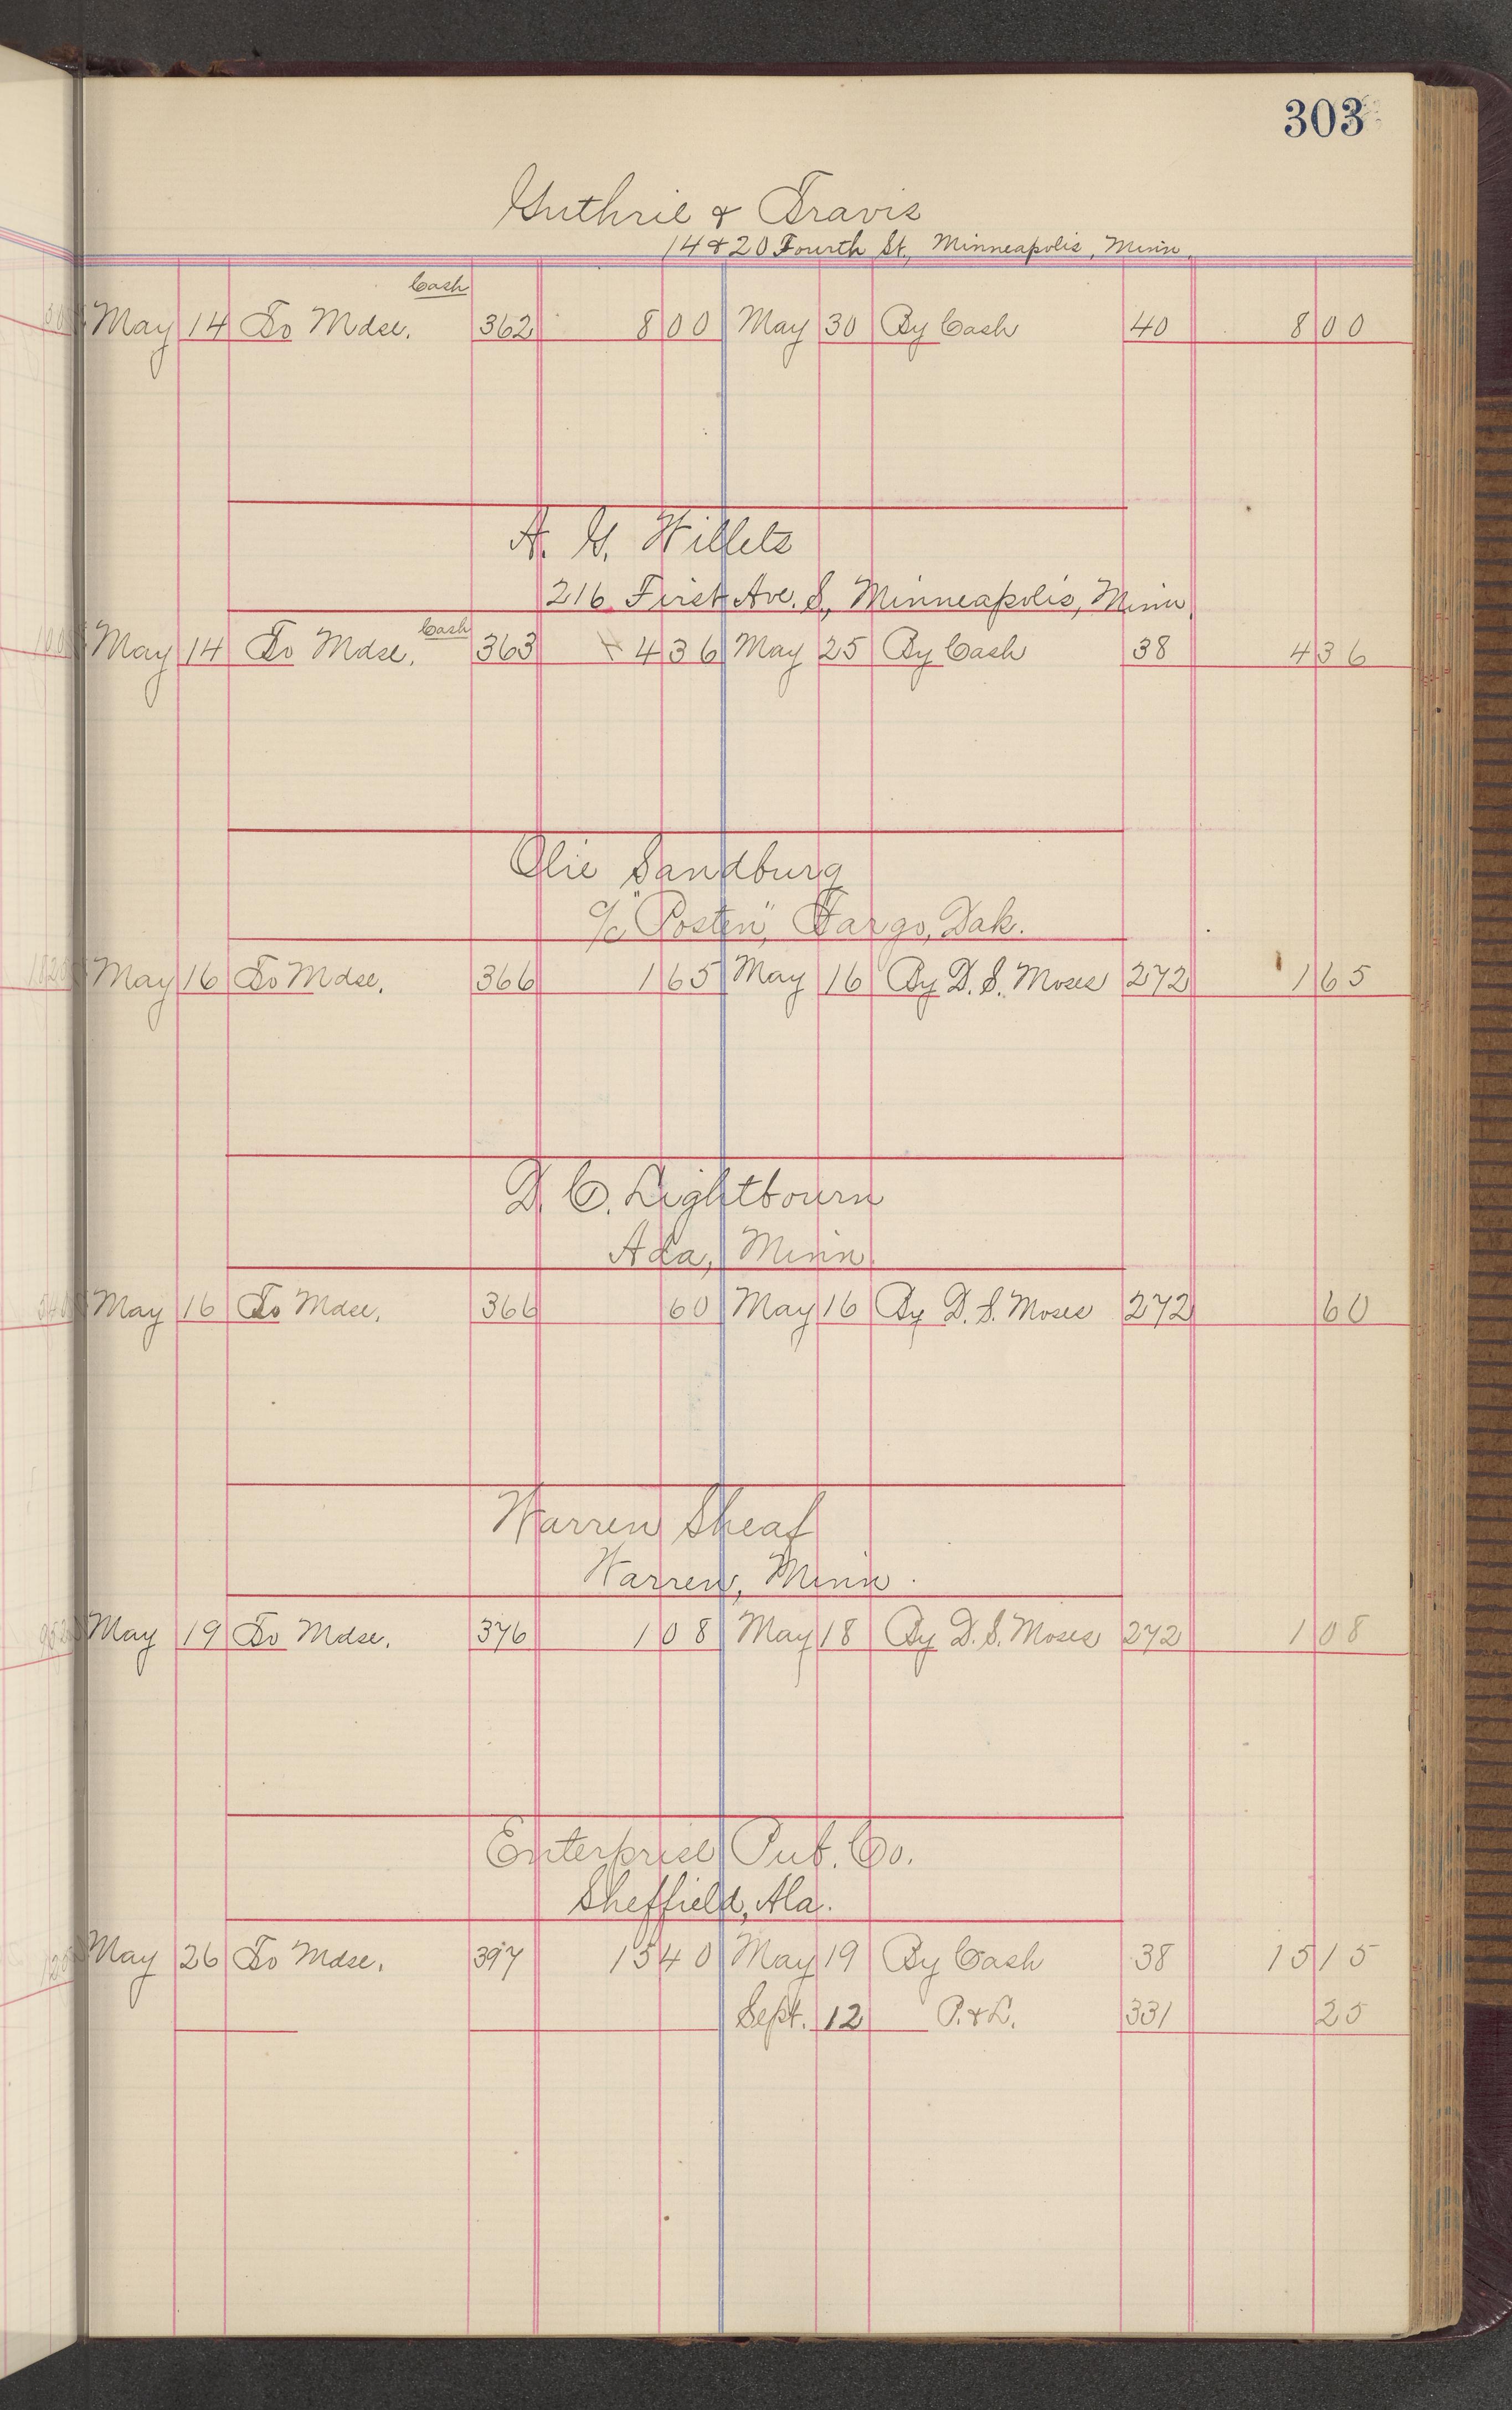 303
Guthrie & Travis
14 & 20 Fourth St., Minneapolis, Minn.
Cash
May 14 To Mdse. 362 8 00 May 30 By Cash 40 8 00
A. G. Willets
216 First Ave. S., Minneapolis, Minn.
Cash
May 14 To Mdse. 363 4 36 May 25 By Cash 38 4 36
Olie Sandburg
c/o "Posten", Fargo, Dak.
May 16 To Mdse. 366 1 65 May 16 By D. S. Moses 272 1 65
D. C. Lightbourn
Ada, Minn.
May 16 To Mdse. 366 60 May 16 By D. S. Moses 272 60
Warren Sheaf
Warren, Minn.
May 19 To Mdse. 376 1 08 May 18 By D. S. Moses 272 1 08
Enterprise Pub. Co.
Sheffield, Ala.
May 26 To Mdse. 397 15 40 May 19 By Cash 38 15 15
Sept. 12 P. & L. 331 25